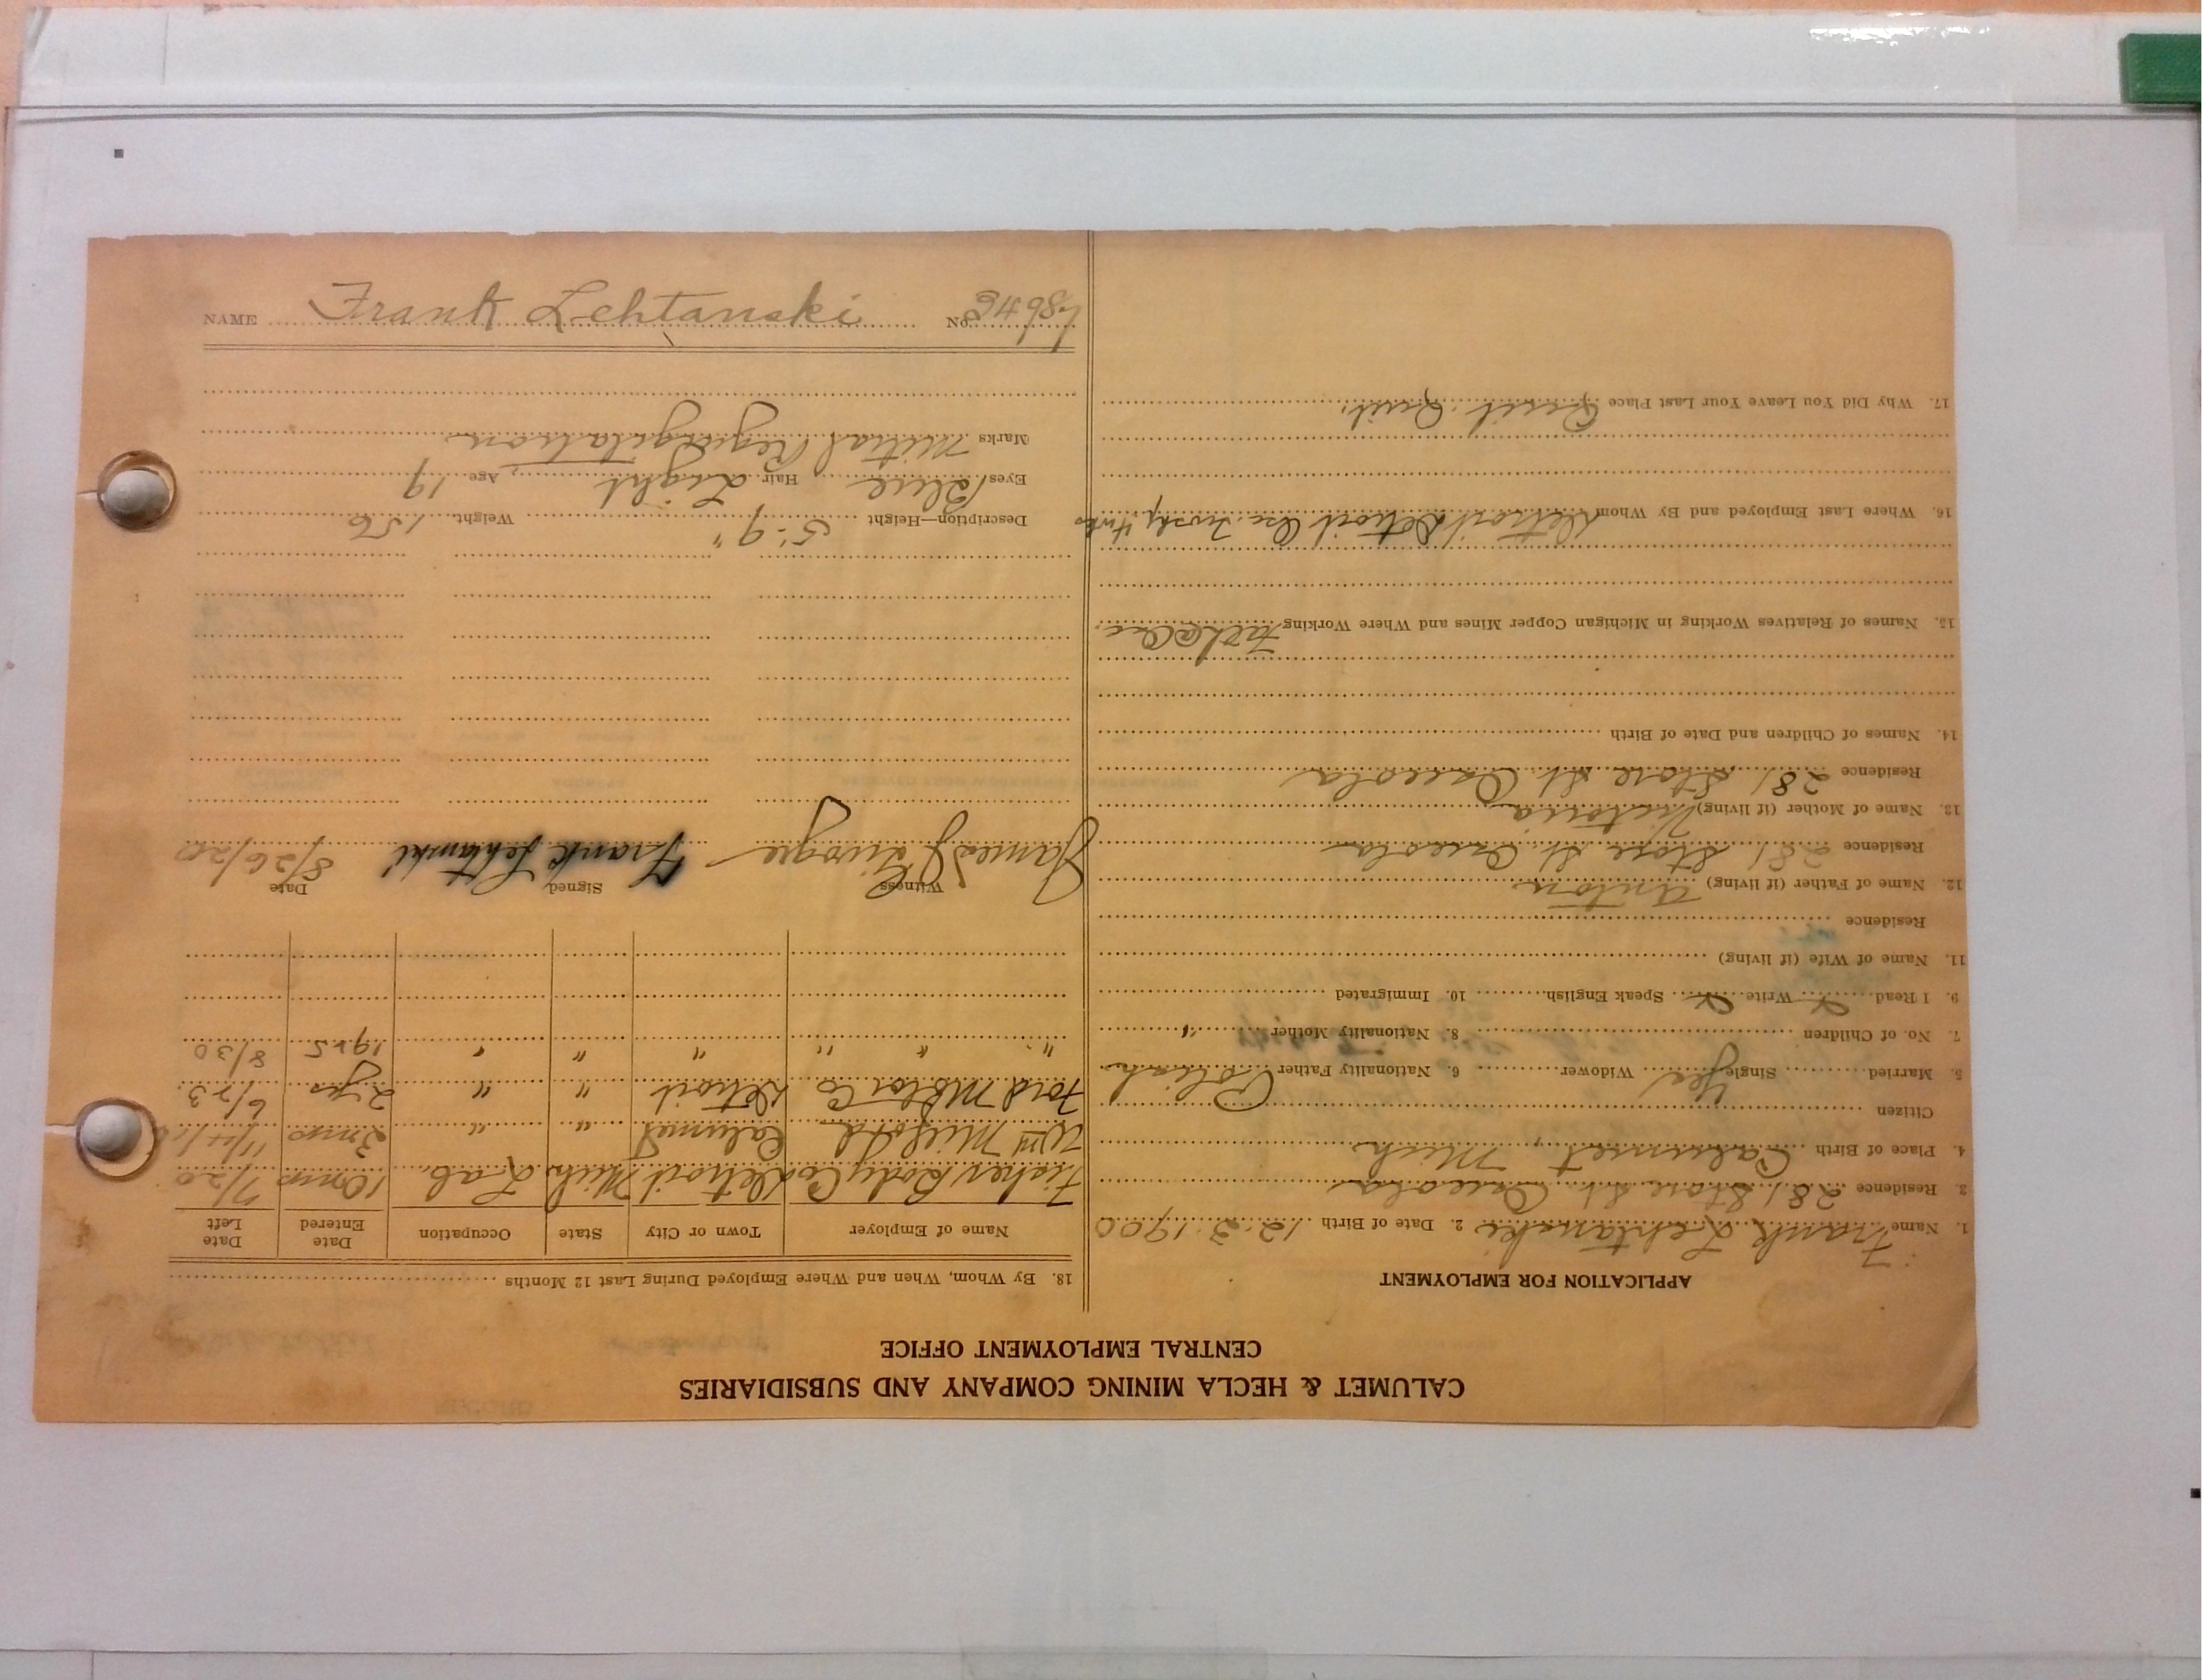 CALUMET & HECLA MINING COMPANY AND SUBSIDIARIES
CENTRAL EMPLOYMENT OFFICE
APPLICATION FOR EMPLOYMENT
1. Name Frank Lehtanski 2. Date of Birth 12-3-1900
3. Residence 281 Stone St. Osceola
4. Place of Birth Calumet, Mich
Citizen
5. Married Single Yes Widower 6. Nationality Father Polish
7. No. of Children 8. Nationality Mother "
9. I Read Write Speak English 10. Immigrated
11. Name of Wife (if living)
Residence
12. Name of Father (if living) Anton
Residence 281 Stone St. Osceola
13. Name of Mother (if living) Victoria
Residence 281 Stone St. Osceola
14. Names of Children and Date of Birth
15. Names of Relatives Working in Michigan Copper Mines and Where Working
16. Where Last Employed and By Whom Detroit
17. Why Did You Leave Your Last Place Quit. Quit.
18. By Whom, When and Where Employed During Last 12 Months
Name of Employer Town or City State Occupation Date Entered Date Left
Fisher Body Co Detroit Mich Lab. 10 mo 7/20
Wm Calumet " " 3 mo
Ford Motor Co Detroit " " 2 yrs 6/23
" " " " " " 1925 8/30
Witness Signed Date
James Frank Lehtanski 8/26/20
Description—Height 5'-9" Weight 156
Eyes Blue Hair Light Age 19
Marks Mitral Regurgitation
NAME Frank Lehtanski NO.